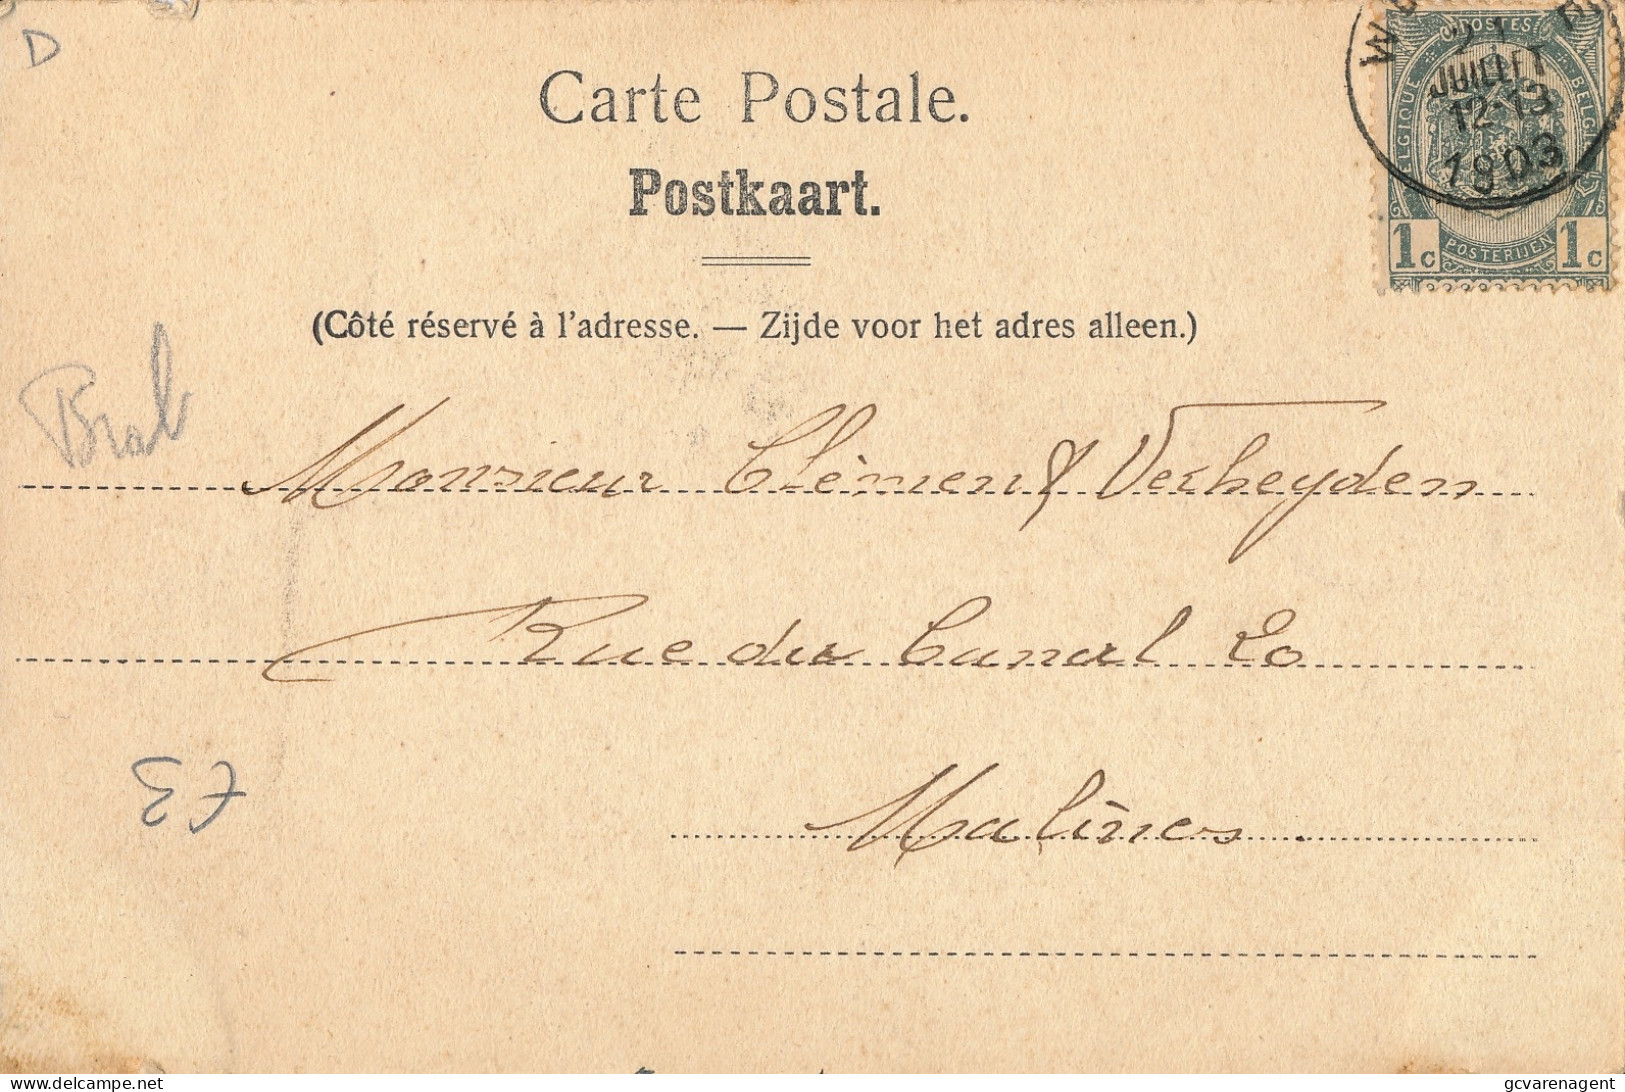 D
Carte Postale.
Postkaart.
(Côté réservé à l'adresse. — Zijde voor het adres alleen.)
POSTES
BELGIQUE BELGIË
21
JUILLET
12-13
1903
1c POSTERIJEN 1c
Brab
Monsieur Clèment Verheyden
Rue du Canal 20
Malines
delcampe.net
gcvarenagent